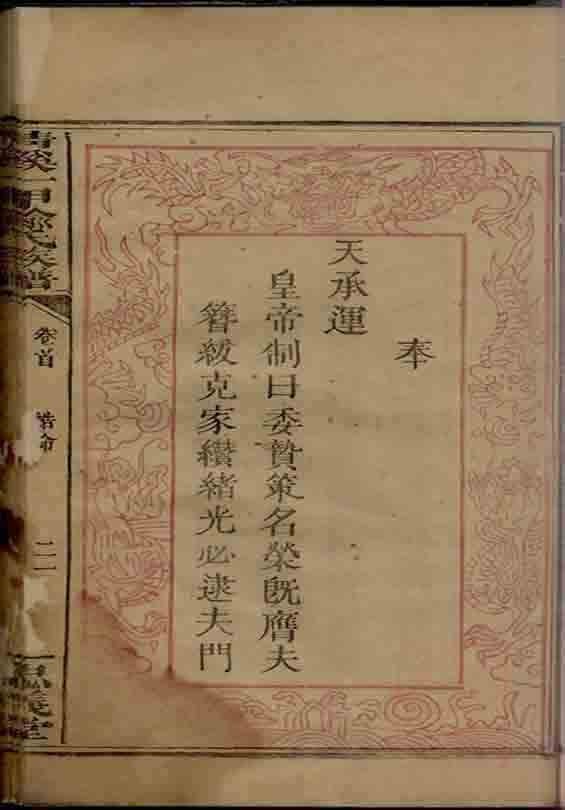 奉
天承運
皇帝制曰委贄策名榮既膺夫
簪紱克家纘緒光必逮夫門
氏族譜
卷首
誥命
二
堂